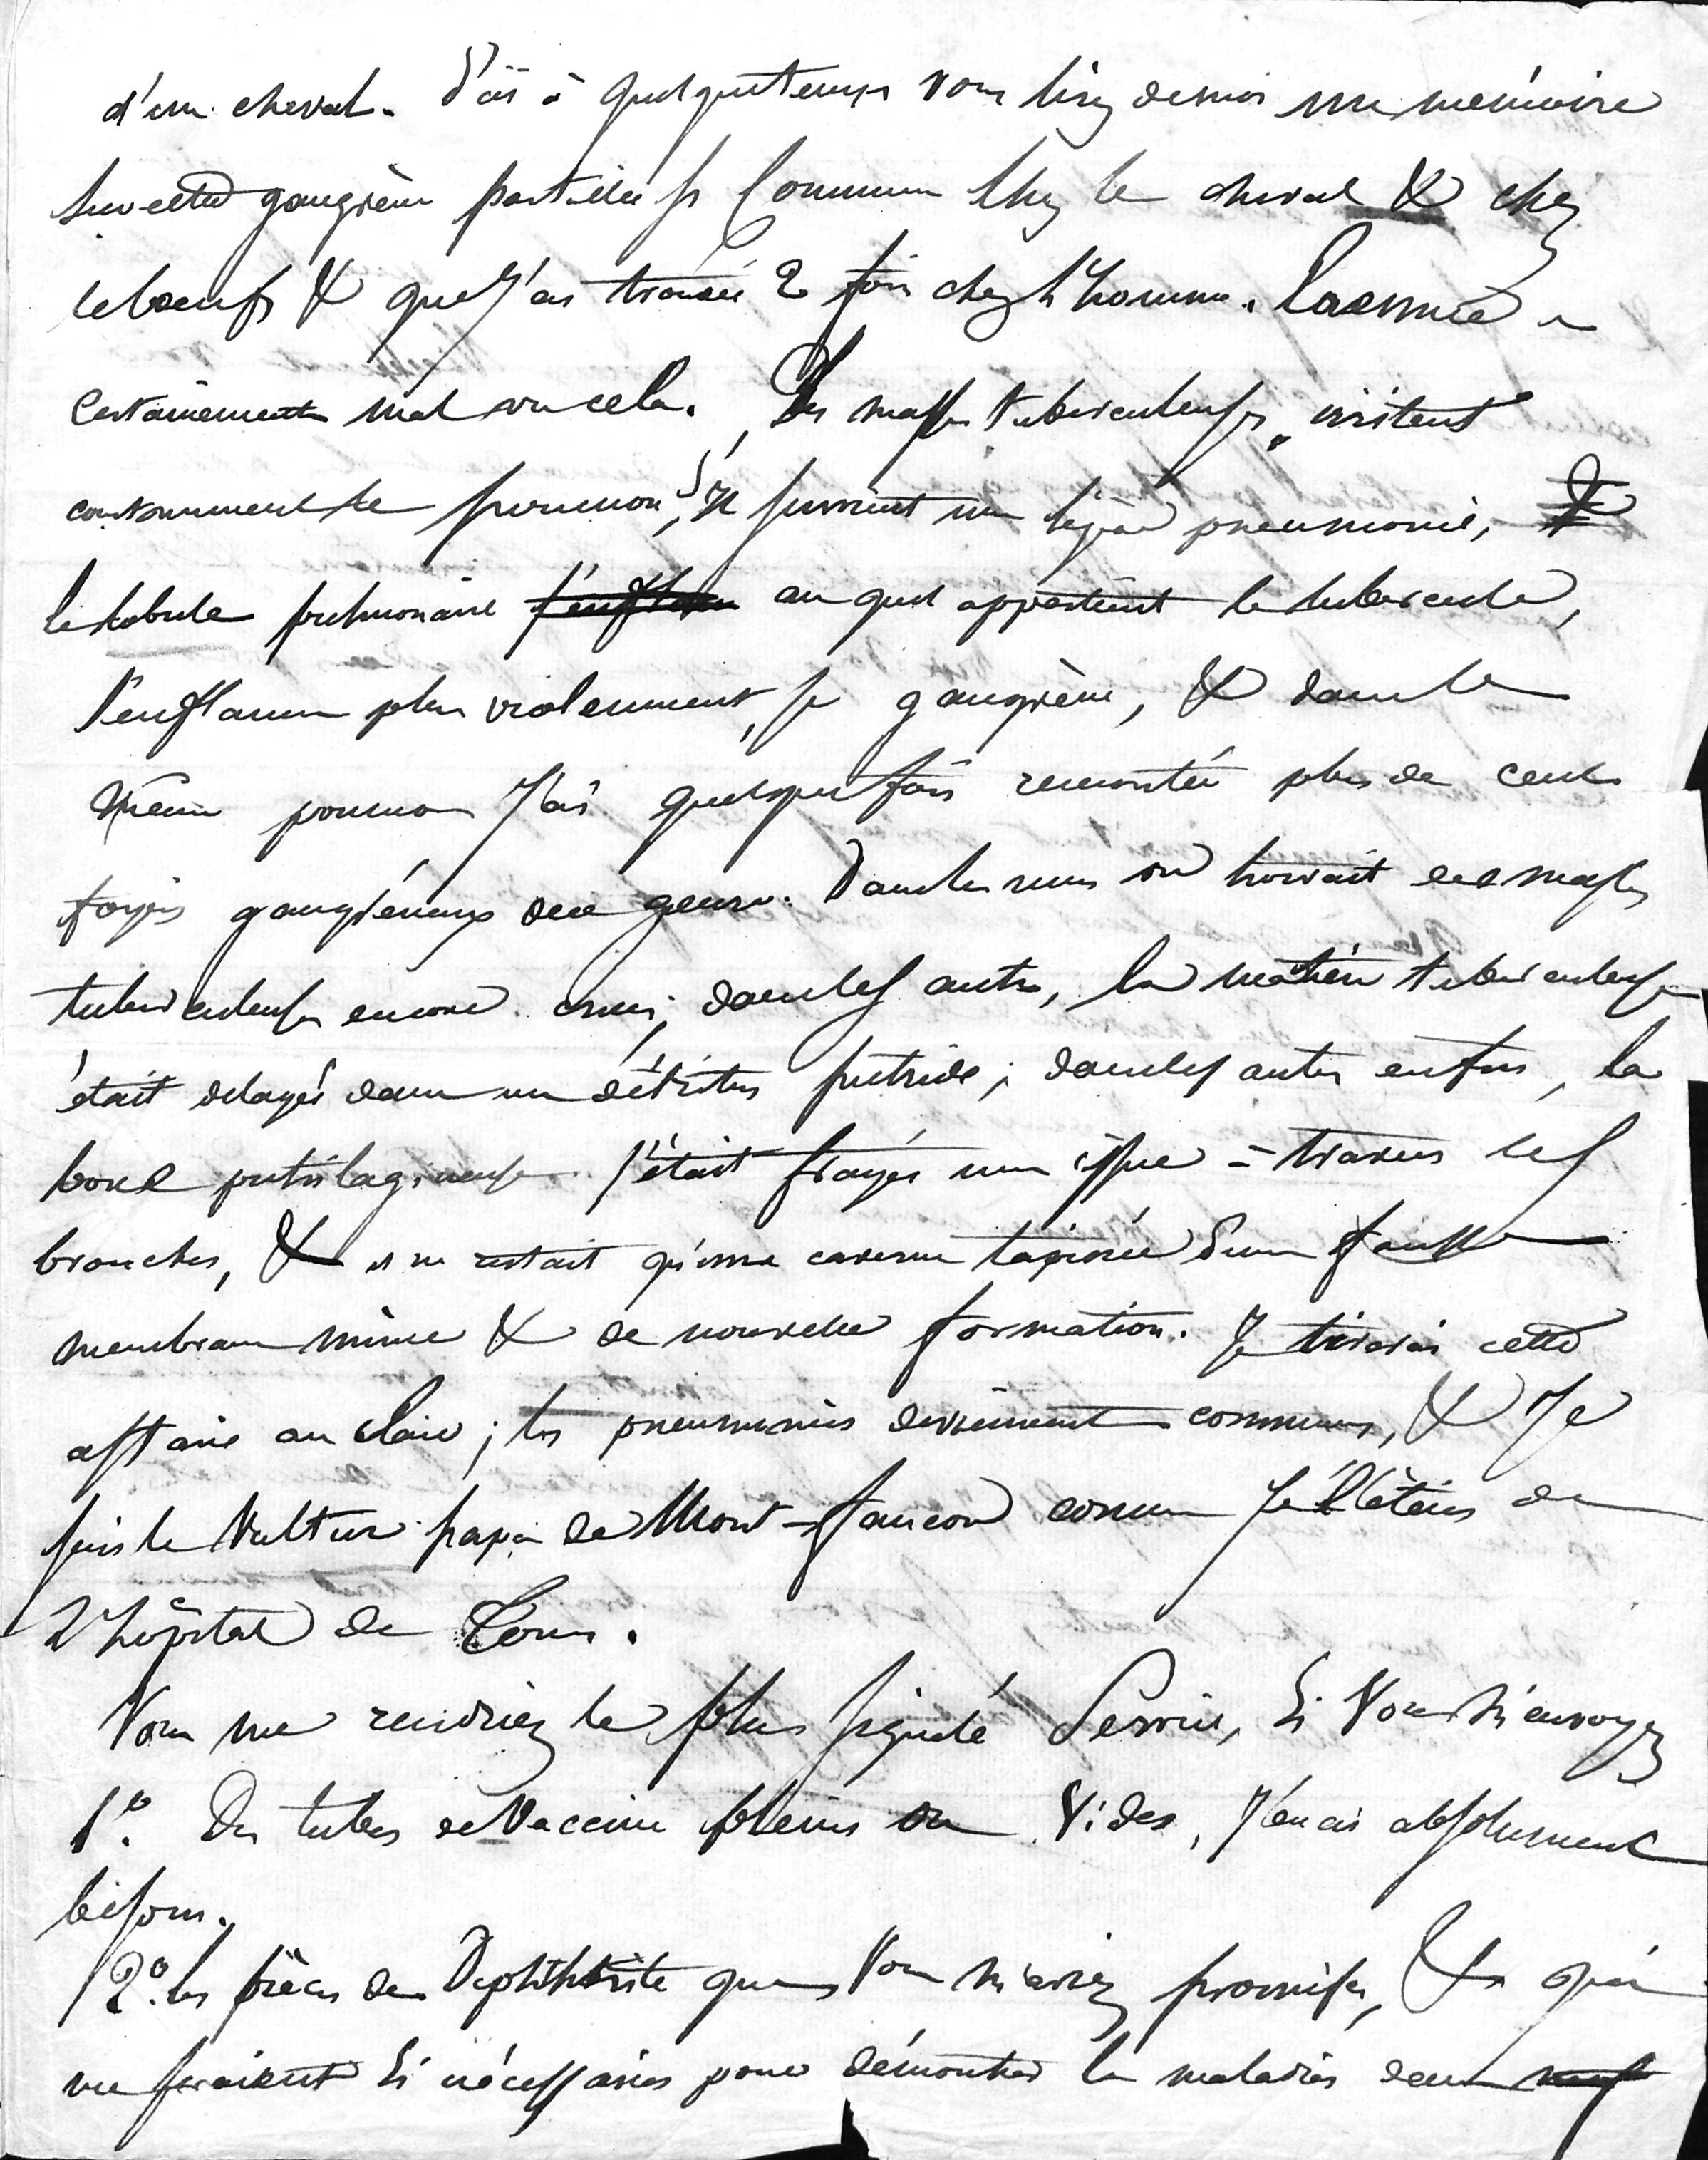 d'un cheval. D'ici à quelque temps vous lirez de moi un mémoire
sur cette gangrène partielle si commune chez le cheval & chez
le bœuf & que j'ai trouvée 2 fois chez l'homme. Laennec a
certainement mal vu cela. Des masses tuberculeuses existent
dans le poumon, s'il survient une légère pneumonie,
le lobule pulmonaire auquel appartient le tubercule,
s'enflamme plus violemment, se gangrène, & dans le
même poumon j'ai quelquefois rencontré plus de cent
foyers gangréneux de ce genre. Dans les uns on trouvait des masses
tuberculeuses encore crues; dans les autres, la matière tuberculeuse
était delayée dans un détritus putride; dans les autres enfin, la
boue putrilagineuse s'était frayée une issue à travers les
bronches, & il ne restait qu'une caverne tapissée d'une fausse
membrane mince & de nouvelle formation. Je tirerai cette
affaire au clair; les pneumonies deviennent communes, & je
suis le Vultur papa de Mont-faucon comme je l'étais de
l'hôpital de Tours.
Vous me rendriez le plus signalé Service, si vous m'envoyez
1o. Des tubes de Vaccin pleins ou vides, j'en ai absolument
besoin.
2o. les pièces de Diphthérite que vous m'aviez promises, & qui
me seraient si nécessaires pour démontrer la maladie dans